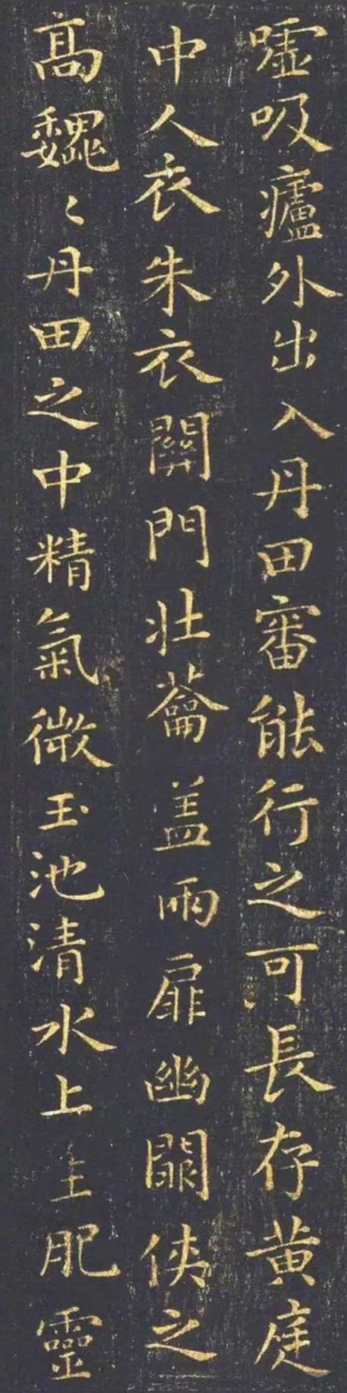 嘘吸廬外出入丹田審能行之可長存黄庭
中人衣朱衣關門壯蘥盖兩扉幽闕俠之
高魏〻丹田之中精氣微玉池清水上生肥靈